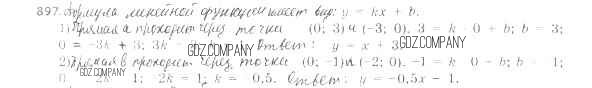 897. Формула линейной функции имеет вид: y = kx + b.
1) Прямая a проходит через точки (0; 3) и (-3; 0). 3 = k · 0 + b; b = 3;
0 = -3k + 3; 3k Ответ: y = x + 3.
GDZ.COMPANY GDZ.COMPANY
2) Прямая b проходит через точки (0; -1) и (-2; 0). -1 = k · 0 + b; b = -1;
GDZ.COMPANY
0 2k 1; -2k = 1; k = -0,5. Ответ: y = -0,5x - 1.